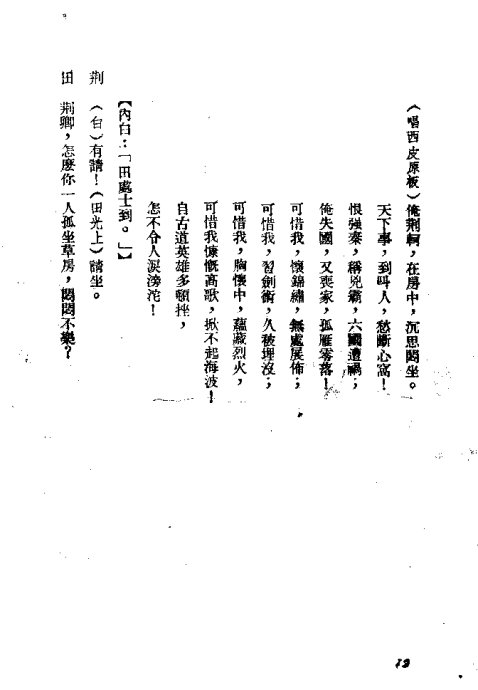 (唱西皮原板)俺荆軻,在房中,沉思悶坐。
天下事,到叫人,愁斷心窩!
恨强秦,稱兇霸,六國遭禍;
俺失國,又喪家,孤雁零落!
可惜我,懷錦繡,無處展佈;
可惜我,習劍術,久被埋沒;
可惜我,胸懷中,蘊藏烈火,
可惜我慷慨高歌,掀不起海波!
自古道英雄多頓挫,
怎不令人淚滂沱!
【內白:「田處士到。」】
荆 (白)有請!(田光上)請坐。
田 荆卿,怎麽你一人孤坐草房,悶悶不樂?
12